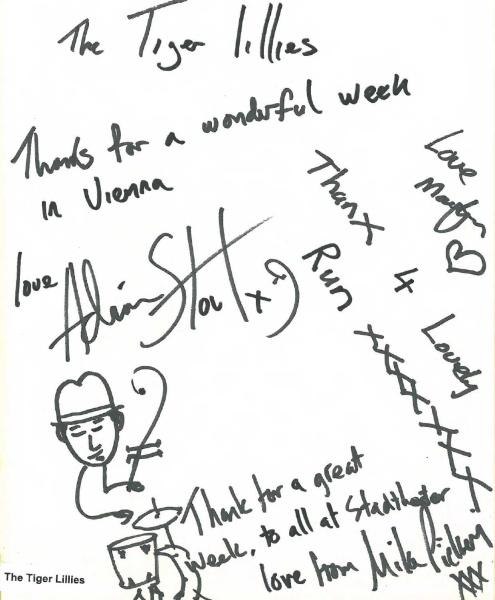 The Tiger lillies
Thanks for a wonderful week
in Vienna
love Adrian Stout x
Love
Martyn
Thanx 4 Lovely
Run
xxxxxxxx
Thank for a great
week, to all at Stadttheater
love from Mike Pickering
XXX
The Tiger Lillies